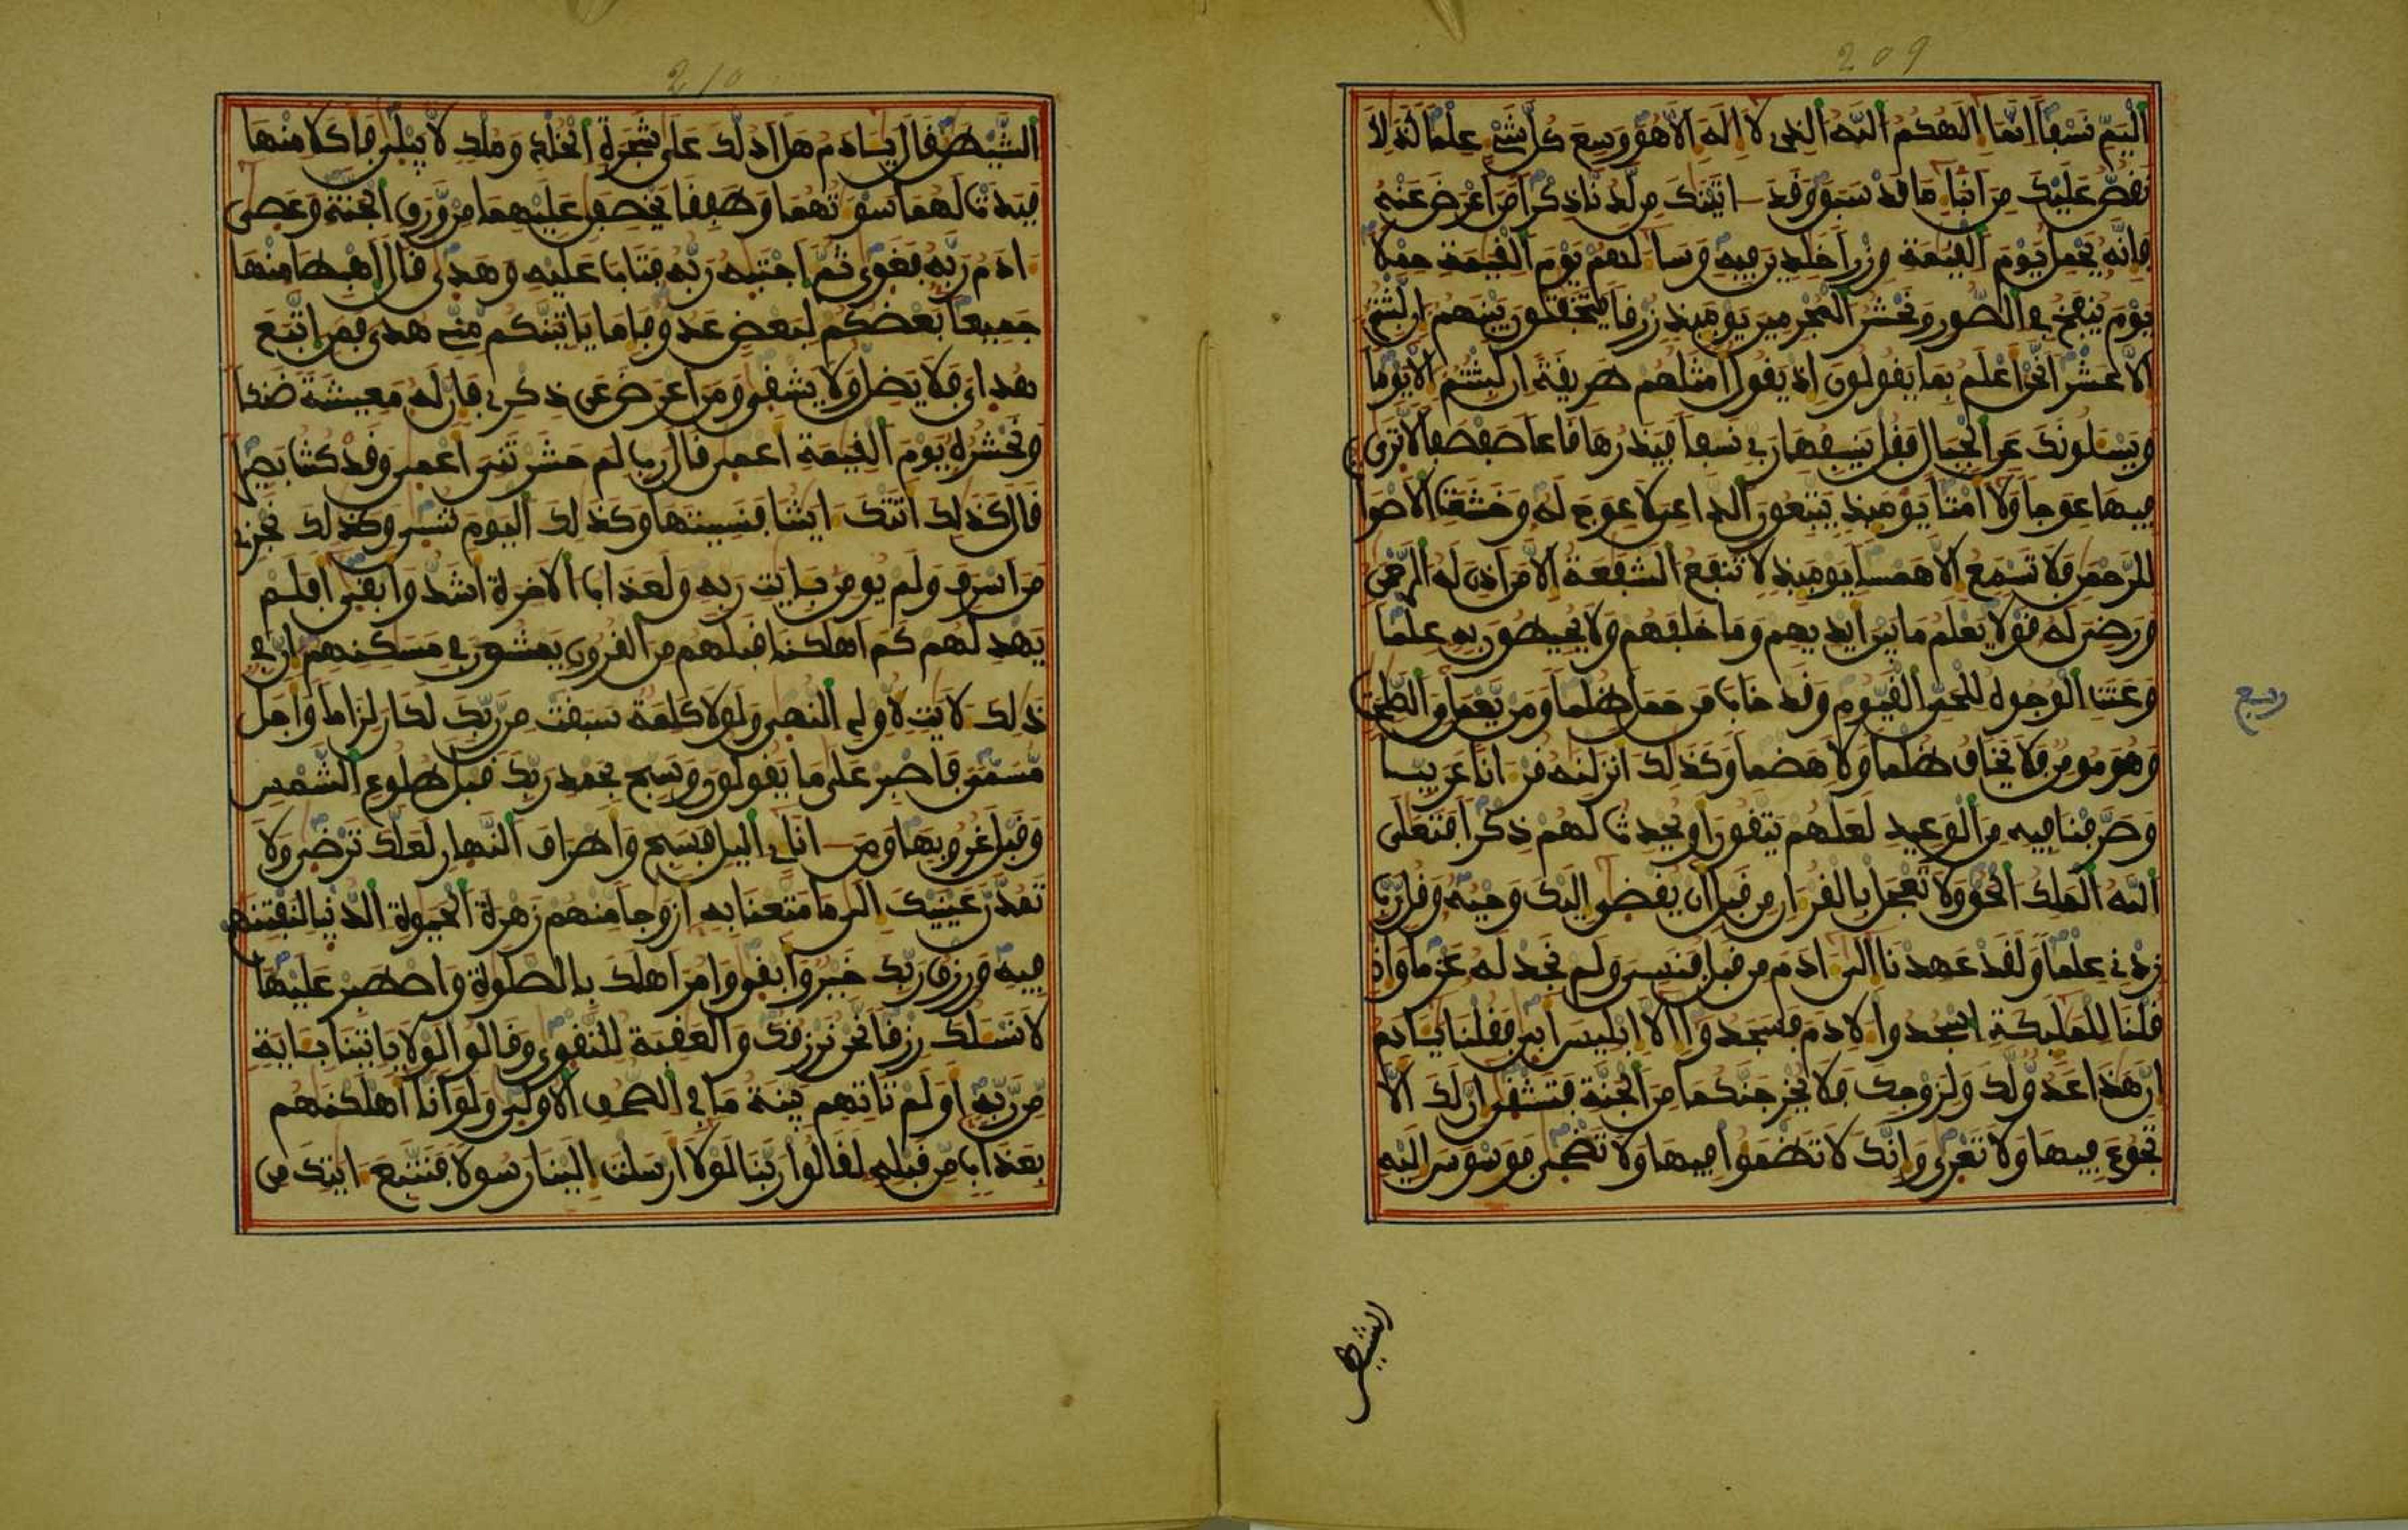 209
اليم نسفا انما الهكم الله الذى لا اله الا هو وسع كل شىء علما كذلك
نقص عليك من انباء ما قد سبق وقد اتينك من لدنا ذكرا من اعرض عنه
فانه يحمل يوم القيمة وزرا خلدين فيه وساء لهم يوم القيمة حملا
يوم ينفخ في الصور ونحشر المجرمين يوميذ زرقا يتخفتون بينهم ان لبثتم
الا عشرا نحن اعلم بما يقولون اذ يقول امثلهم طريقة ان لبثتم الا يوما
ويسلونك عن الجبال فقل ينسفها ربي نسفا فيذرها قاعا صفصفا لا ترى
فيها عوجا ولا امتا يوميذ يتبعون الداعي لا عوج له وخشعت الاصوات
للرحمن فلا تسمع الا همسا يوميذ لا تنفع الشفعة الا من اذن له الرحمن
ورضي له قولا يعلم ما بين ايديهم وما خلفهم ولا يحيطون به علما
وعنت الوجوه للحي القيوم وقد خاب من حمل ظلما ومن يعمل من الصلحت
ربع
وهو مومن فلا يخاف ظلما ولا هضما وكذلك انزلنه قرءانا عربيا
وصرفنا فيه من الوعيد لعلهم يتقون او يحدث لهم ذكرا فتعلى
الله الملك الحق ولا تعجل بالقرءان من قبل ان يقضى اليك وحيه وقل رب
زدني علما ولقد عهدنا الى ءادم من قبل فنسي ولم نجد له عزما واذ
قلنا للمليكة اسجدوا لادم فسجدوا الا ابليس ابى فقلنا يادم
ان هذا عدو لك ولزوجك فلا يخرجنكما من الجنة فتشقى ان لك الا
تجوع فيها ولا تعرى وانك لا تظمؤا فيها ولا تضحى فوسوس اليه
الشيطن
210
الشيطن قال يادم هل ادلك على شجرة الخلد وملك لا يبلى فاكلا منها
فبدت لهما سوءتهما وطفقا يخصفن عليهما من ورق الجنة وعصى
ءادم ربه فغوى ثم اجتبه ربه فتاب عليه وهدى قال اهبطا منها
جميعا بعضكم لبعض عدو فاما ياتينكم مني هدى فمن اتبع
هداي فلا يضل ولا يشقى ومن اعرض عن ذكري فان له معيشة ضنكا
ونحشره يوم القيمة اعمى قال رب لم حشرتني اعمى وقد كنت بصيرا
قال كذلك اتتك ءايتنا فنسيتها وكذلك اليوم تنسى وكذلك نجزي
من اسرف ولم يومن بايت ربه ولعذاب الاخرة اشد وابقى افلم
يهد لهم كم اهلكنا قبلهم من القرون يمشون في مسكنهم ان في
ذلك لايت لاولي النهى ولولا كلمة سبقت من ربك لكان لزاما واجل
مسمى فاصبر على ما يقولون وسبح بحمد ربك قبل طلوع الشمس
وقبل غروبها ومن ءاناءي اليل فسبح واطراف النهار لعلك ترضى ولا
تمدن عينيك الى ما متعنا به ازوجا منهم زهرة الحيوة الدنيا لنفتنهم
فيه ورزق ربك خير وابقى وامر اهلك بالصلوة واصطبر عليها
لا نسلك رزقا نحن نرزقك والعقبة للتقوى وقالوا لولا ياتينا باية
من ربه اولم تاتهم بينة ما في الصحف الاولى ولو انا اهلكنهم
بعذاب من قبله لقالوا ربنا لولا ارسلت الينا رسولا فنتبع ءايتك من